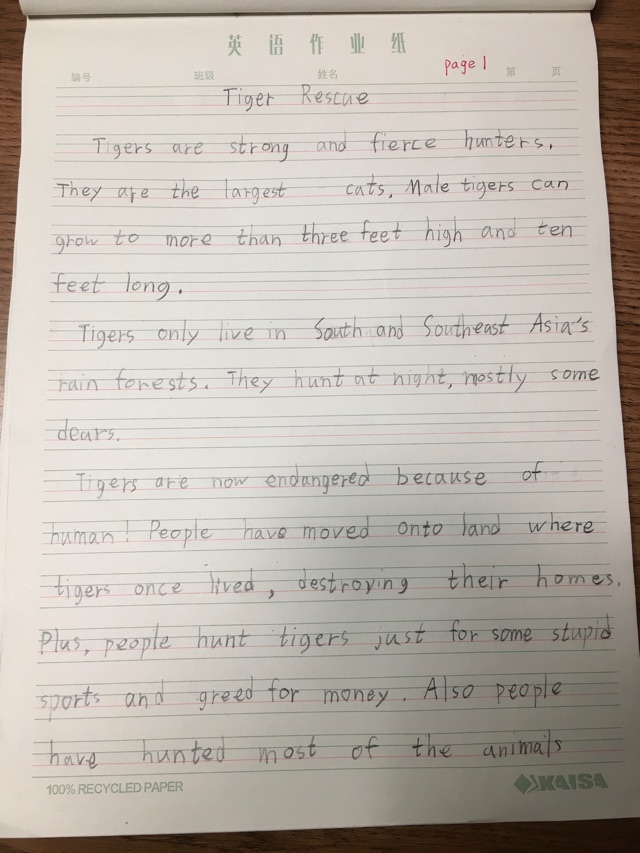 英语作业纸
page 1
编号 班级 姓名 第 页
Tiger Rescue
Tigers are strong and fierce hunters.
They are the largest cats. Male tigers can
grow to more than three feet high and ten
feet long.
Tigers only live in South and Southeast Asia's
rain forests. They hunt at night, mostly some
dears.
Tigers are now endangered because of
human! People have moved onto land where
tigers once lived, destroying their homes.
Plus, people hunt tigers just for some stupid
sports and greed for money. Also people
have hunted most of the animals
100% RECYCLED PAPER KAISA